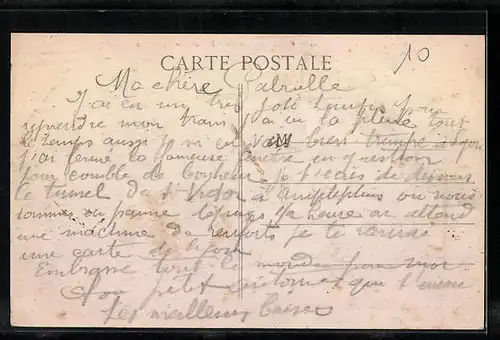 CARTE POSTALE
10
Ma chère Gabrielle
J'ai eu un très joli temps pour
reprendre mon train j'ai eu la pluie tout
le temps aussi je suis bien trempé à
j'ai fermé la fameuse fenêtre en question
pour comble de bonheur je t'écris de
le tunnel de St Victor à Amplepluis où nous
sommes en panne depuis ½ heure on attend
une machine de renforts je te
une carte de
Embrasse tout le monde pour moi
Ton petit Antoine qui t'aime
Les meilleurs baisers